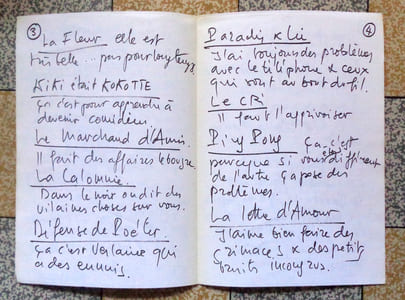 3
La Fleur elle est
très belle... pas pour longtemps
KiKi était KOKOTTE
ça c'est pour apprendre à
devenir comédien.
Le Marchand d'Amis.
Il fait des affaires le bougre.
La Calomnie.
Dans le noir on dit des
vilaines choses sur vous.
Défense de
ça c'est Verlaine qui
a des ennuis.
4
Paradis
J'ai toujours des problèmes
avec le téléphone & ceux
qui sont au bout du fil.
Le CRi
Il faut l'apprivoiser
Ping Pong ça c'est
parceque si vous différent
de l'autre ça pose des
problèmes.
La lettre d'Amour
J'aime bien faire des
grimaces & des petits
bruits incongrus.